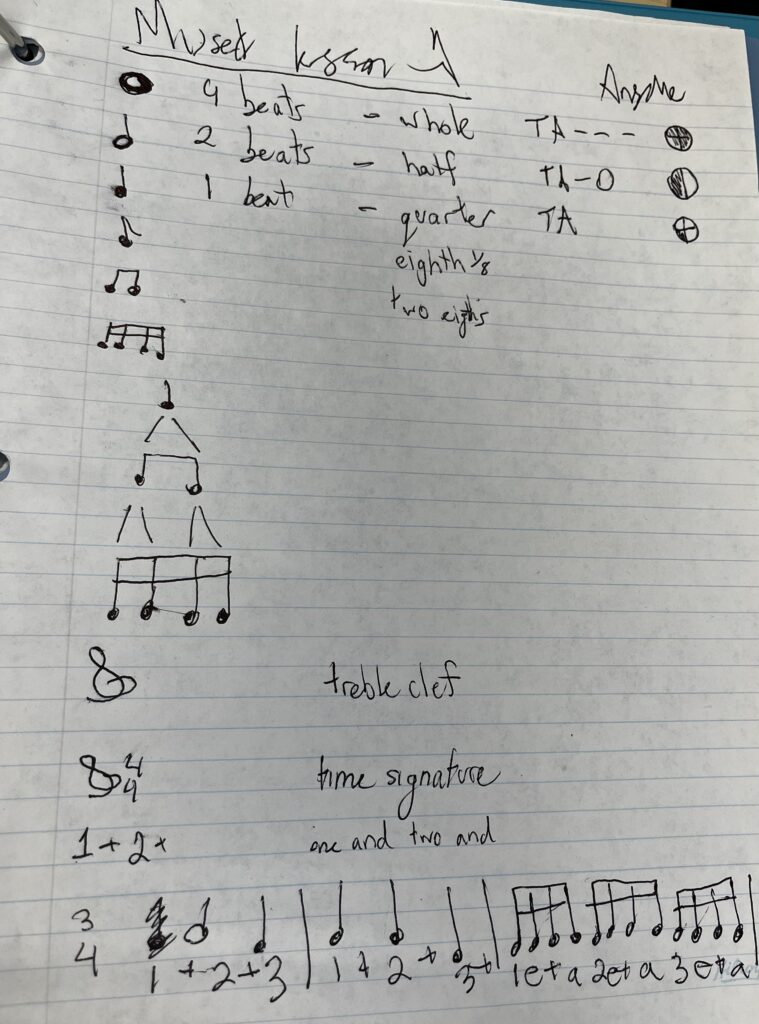 4 beats - whole TA - - -
2 beats - half TA - O
1 beat - quarter TA
eighth 1/8
two eigths
treble clef
4 4 time signature
1 + 2 + one and two and
3 4
1 + 2 + 3 1 + 2 + 3 + 1 e + a 2 e + a 3 e + a